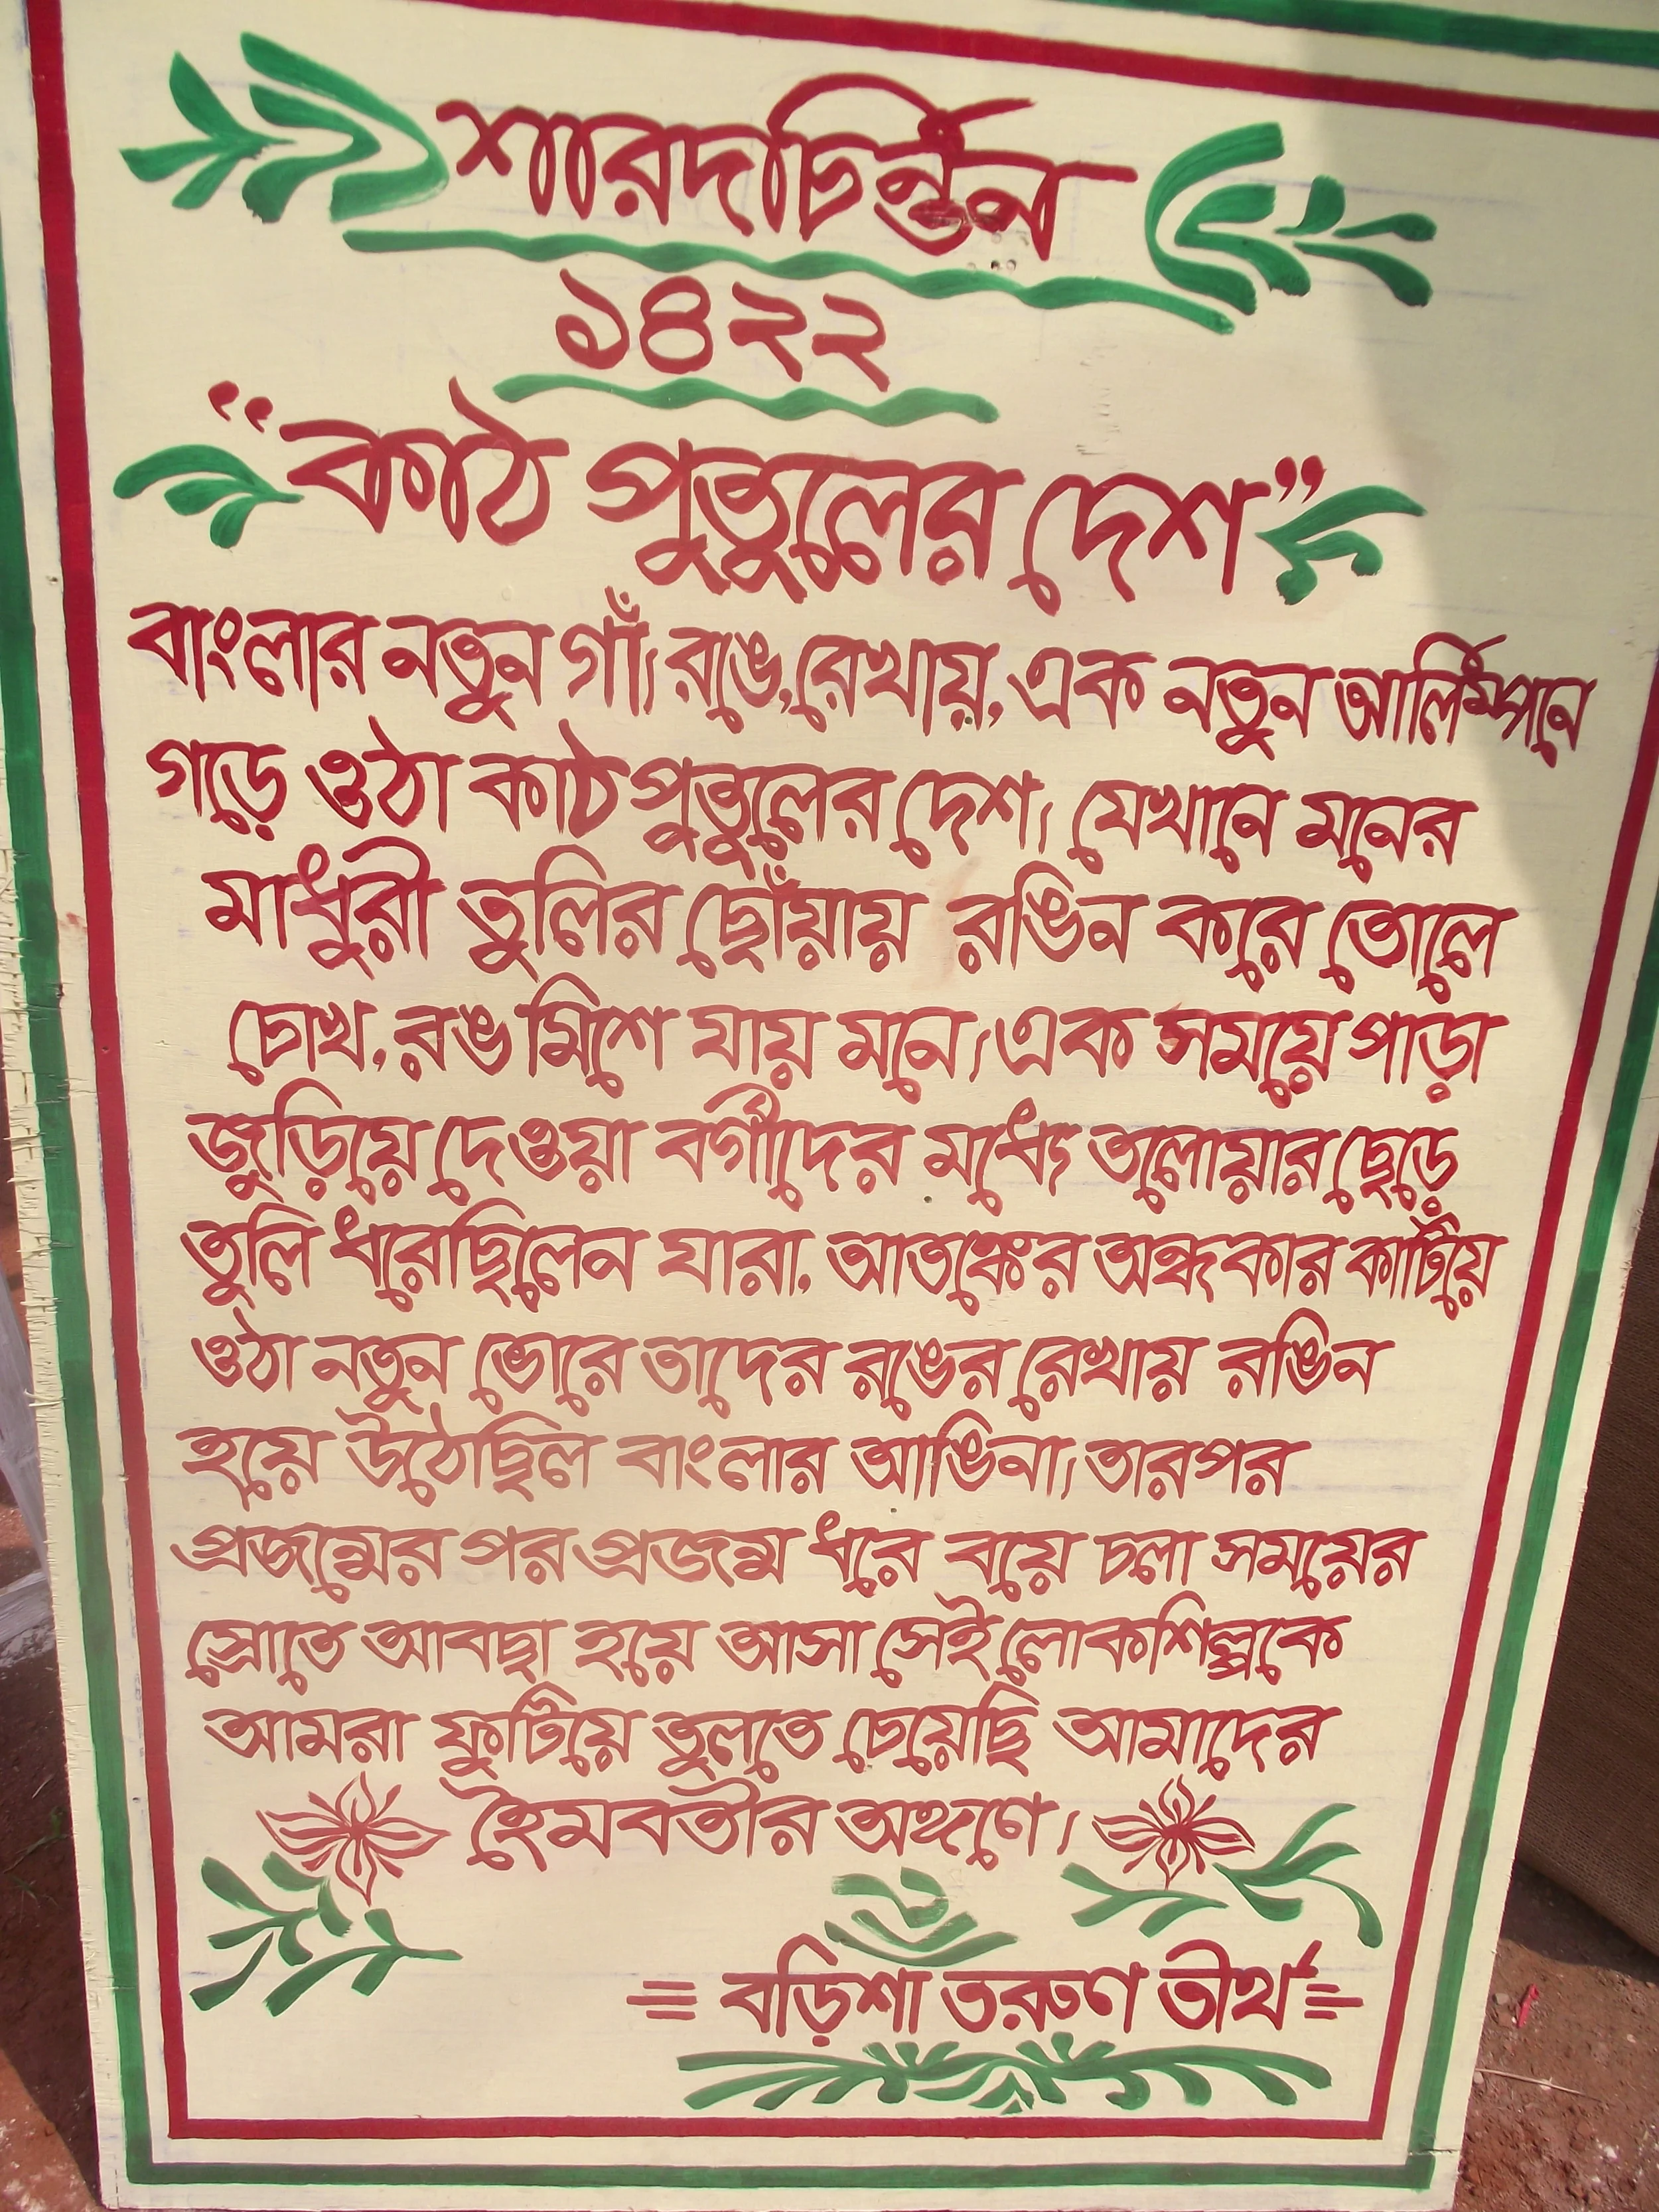 শারদচিন্তন
১৪২২
"কাঠ পুতুলের দেশ"
বাংলার নতুন গাঁ। রঙে, রেখায়, এক নতুন আলিম্পনে
গড়ে ওঠা কাঠপুতুলের দেশ। যেখানে মনের
মাধুরী তুলির ছোঁয়ায় রঙিন করে তোলে
চোখ, রঙ মিশে যায় মনে। এক সময়ে পাড়া
জুড়িয়ে দেওয়া বর্গীদের মধ্যে তলোয়ার ছেড়ে
তুলি ধরেছিলেন যারা, আতঙ্কের অন্ধকার কাটিয়ে
ওঠা নতুন ভোরে তাদের রঙের রেখায় রঙিন
হয়ে উঠেছিল বাংলার আঙিনা। তারপর
প্রজন্মের পর প্রজন্ম ধরে বয়ে চলা সময়ের
স্রোতে আবছা হয়ে আসা সেই লোকশিল্পকে
আমরা ফুটিয়ে তুলতে চেয়েছি আমাদের
হৈমবতীর অঙ্গণে।
= বড়িশা তরুণ তীর্থ =